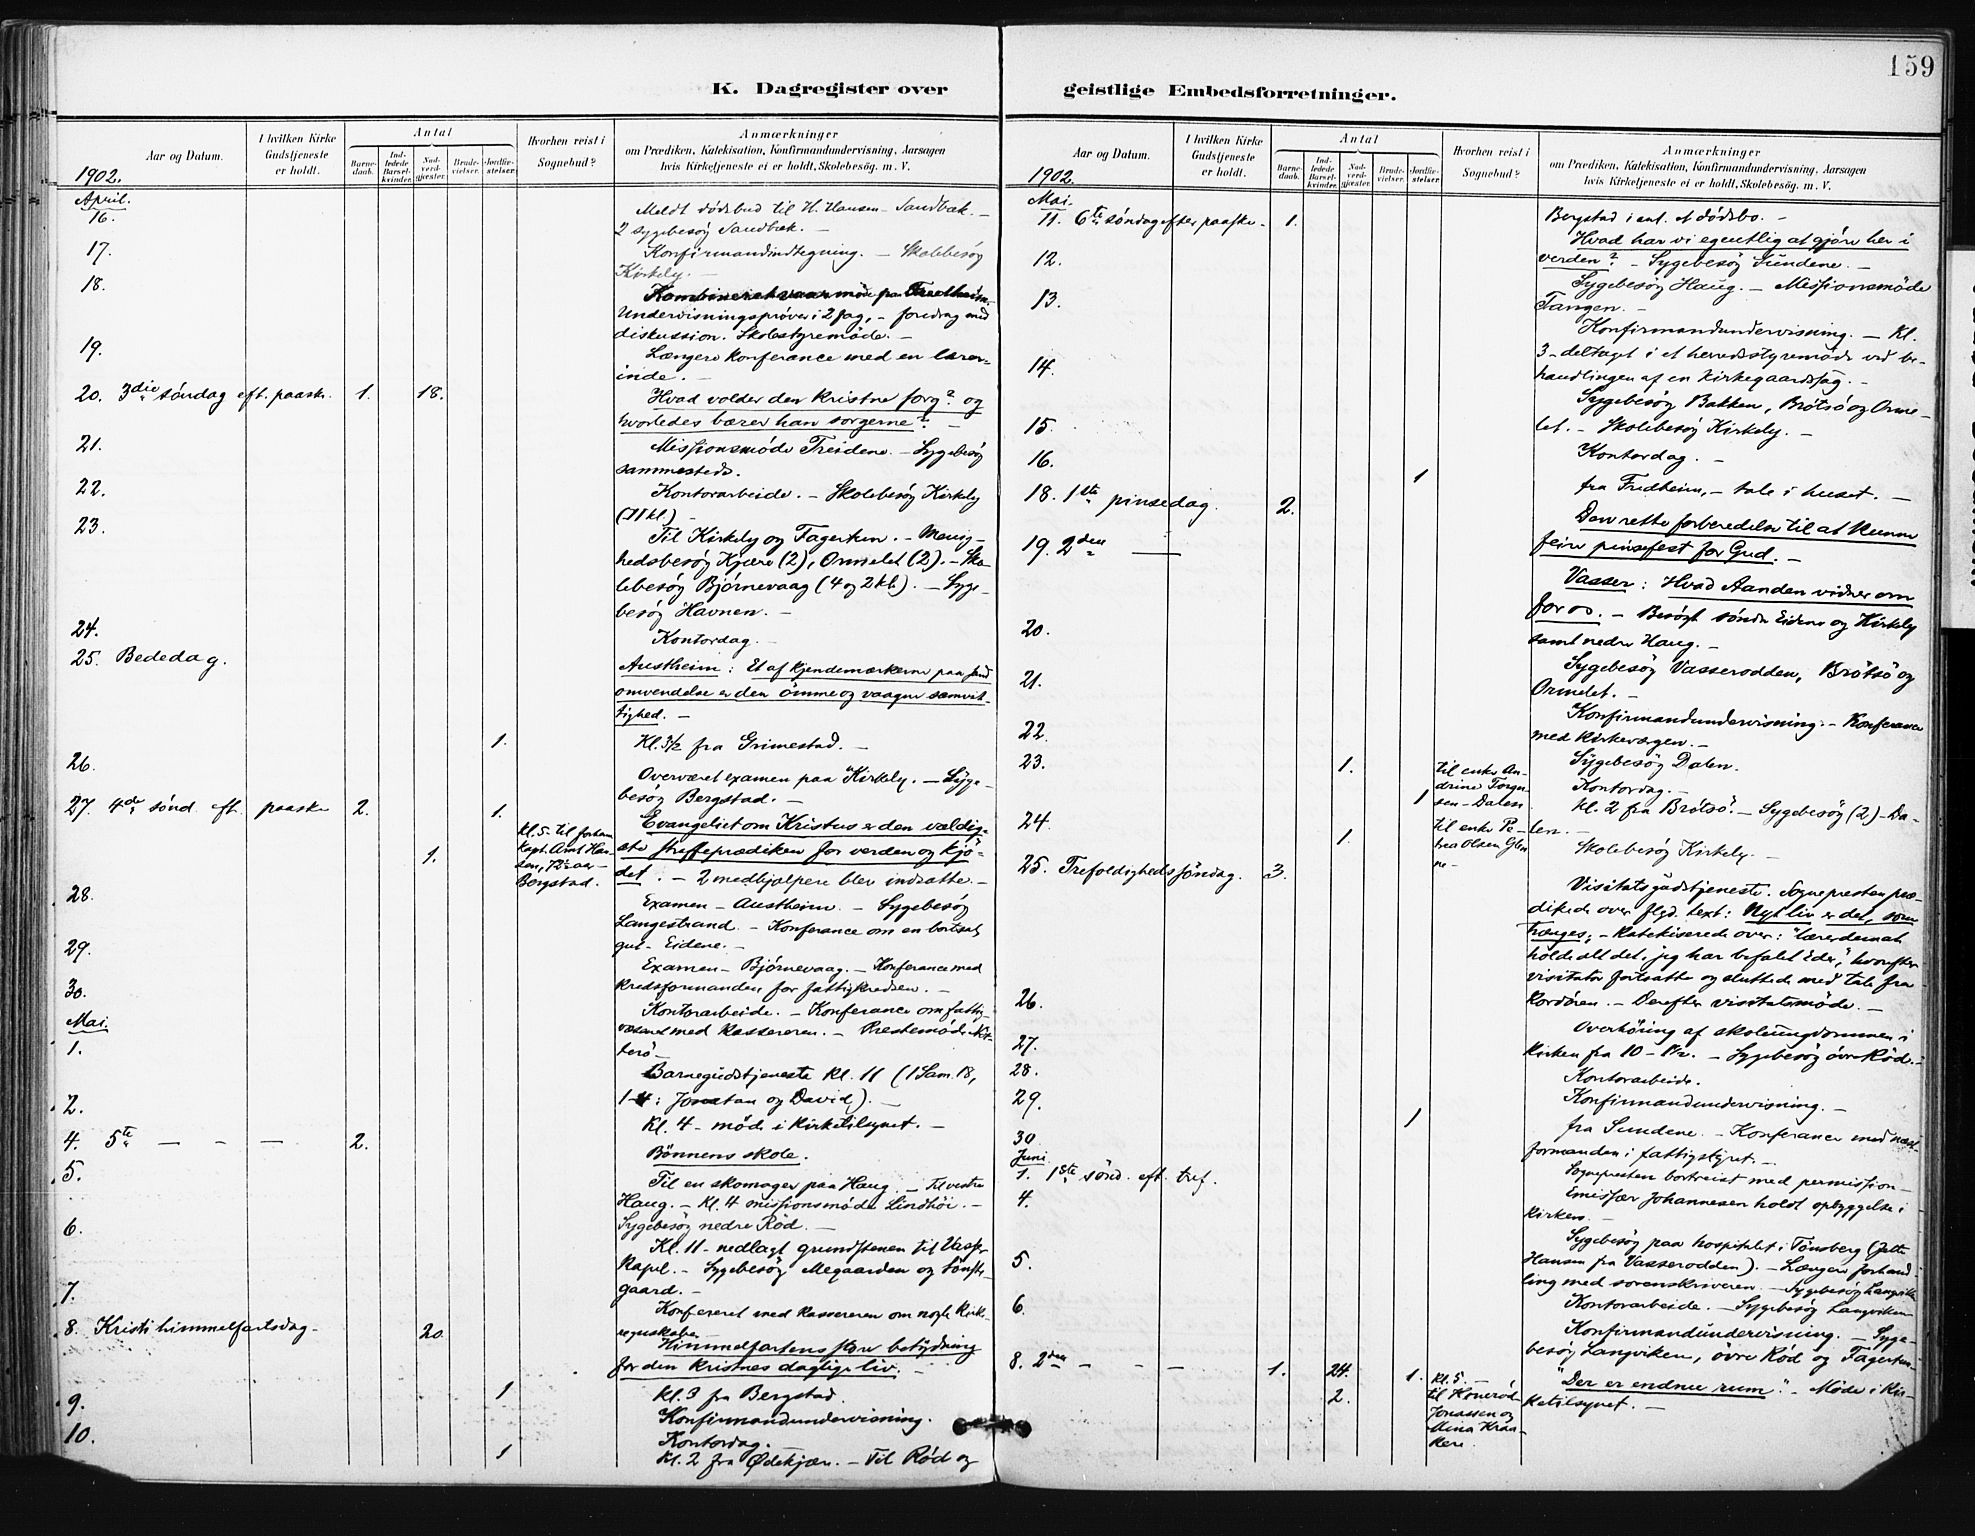 K. Dagregister over
Aar og Datum.
I hvilken Kirke
Gudstjeneste
er holdt.
Antal
Barne-
daab.
Ind-
ledede
Barsel-
kvinder.
Nad-
verd-
gjæster.
Brude-
vielser.
Jordfæ-
stelser.
Hvorhen reist i
Sognebud?
Anmærkninger
om Prædiken, Katekisation, Konfirmandundervisning, Aarsagen
hvis Kirketjeneste ei er holdt, Skolebesøg. m. V.
1902.
April.
16. Meldt dödsbud til H. Hansen - Sandbæk. -
2 sygebesög Sandbæk. -
17. Konfirmandindtegning. - Skolebesög
Kirkely. -
18. Kombineret vaarmöde paa Fredheim.
Undervisningspröver i 2 fag, - foredrag med
diskussion. Skolestyremöde. -
19. Længere konferance med en lærer-
inde. -
20. 3die söndag eft. paaske. 1. 18. Hvad volder den kristne sorg? og
hvorledes bærer han sorgerne? -
21. Missionsmöde Treidene. - Sygebesög
sammesteds.
22. Kontorarbeide. - Skolebesög Kirkely
23. Til Kirkely og Fagertun. - Menig-
hedsbesög Kjære (2), Ormelet (2). - Sko-
lebesög Bjørnevaag (4 og 2 kl.). - Syge-
besög Havnen. -
24. Kontordag. -
25. Bededag. Austheim: Et af kjendemærkerne paa sand
omvendelse er den ömme og vaagne samvit-
tighed. -
1. Kl. 3½ fra Grimestad. -
26. Overværet examen paa Kirkely. - Syge-
besög Bergstad. -
27. 4de sönd. eft. paaske 2. 1. Evangeliet om Kristus er den vældig-
ste straffeprædiken for verden og kjö-
det. - 2 medhjælpere blev indsatte. -
1. kl. 5. til forhenv.
Kapt. Amt Han-
sen,
Bergstad.
28. Examen - Austheim. - Sygebesög
Langestrand. - Konferance om en bortsat
gut - Eidene. -
29. Examen - Bjørnevaag. - Konferance med
kredsformanden for fattigkredsen. -
30. Kontorarbeide. - Konferance om fattig-
væsenet med kassereren. - Prestemöde Nöt-
terö -
Mai.
1. Barnegudstjeneste kl. 11 (1 Sam. 18,
1-4: Jonatan og David). -
2. Kl. 4 - möde i kirketilsynet. -
4. 5te - - - 2. Bönnens skole.
5. Til en skomager paa Haug. - Til vestre
Haug. - Kl. 4 missionsmöde Lindhöi. -
Sygebesög nedre Röd. -
6. Kl. 11 - nedlagt grundstenen til Vasser
kapel. - Sygebesög Megaarden og
gaard. -
7. Konfereret med kassereren om nogle kirke-
regnskaber
8. Kristi himmelfartsdag. 20. Himmelfartens store betydning
for den kristnes daglige liv. -
1 kl. 3 fra Bergstad.
9. Konfirmandundervisning.
10. Kontordag.
1 kl. 2 fra Ødekjær. - Til Röd og
159
geistlige Embedsforretninger.
Aar og Datum.
I hvilken Kirke
Gudstjeneste
er holdt.
Antal
Barne-
daab.
Ind-
ledede
Barsel-
kvinder.
Nad-
verd-
gjæster.
Brude-
vielser.
Jordfæ-
stelser.
Hvorhen reist i
Sognebud?
Anmærkninger
om Prædiken, Katekisation, Konfirmandundervisning, Aarsagen
hvis Kirketjeneste ei er holdt, Skolebesøg. m. V.
1902.
Mai.
Bergstad i anl. et dödsbo. -
11. 6te söndag efter paaske. 1. Hvad har vi egentlig at gjöre her i
verden? - Sygebesög Sundene. -
12. Sygebesög Haug. - Missionsmöde
Tangen. -
13. Konfirmandundervisning. - Kl.
3 - deltaget i et herredsstyremöde ved be-
handlingen af en kirkegaardssag. -
14. Sygebesög Bakken, Brötsö og Orme-
let. - Skolebesög Kirkely. -
15. Kontordag. -
16. 1 fra Fredheim, - tale i huset. -
18. 1ste pinsedag. 2. Den rette forberedelse til at kunne
feire pinsefest for Gud. -
19. 2den — Vasser: Hvad Aanden vidner om
for os. - Besögt söndre Eidene og Kirkely
samt nedre Haug. -
20. Sygebesög Vasserodden, Brötsö og
Ormelet. -
21. Konfirmandundervisning. - Konferance
med kirkeværgen. -
22. Sygebesög Dalen.
23. 1. til enke An-
drine Torger-
sen - Dalen
Kontordag. -
1 kl. 2 fra Brötsö. - Sygebesög (2) - Da-
len. -
24. 1. til enke Pe-
trea Olsen Glen-
ne -
Skolebesög Kirkely. -
25. Trefoldighedssöndag. 3. Visitatsgudstjeneste. Sognepresten præ-
dikede over flgd. text: Nyt liv er det, som
trænges; - katekiserede over: "lærer dem at
holde alt det, jeg har befalet Eder," hvorefter
visitator fortsatte og sluttede med tale fra
kordören. - Derefter visitatsmöde. -
26. Overhöring af skoleungdommen i
kirken fra 10 - 1½. - Sygebesög övre Röd. -
27. Kontorarbeide.
28. Konfirmandundervisning. -
29. 1 fra Sundene. - Konferance med næst-
formanden i fattigstyret. -
30 Sognepresten bortreist med permission -
Juni
1. 1ste sönd. eft. tref. Emissær Johannesen holdt opbyggelse i
kirken. -
4. Sygebesög paa hospitalet i Tönsberg (Jette
Hansen fra Vasserodden). - Længere forhand-
ling med sorenskriveren. - Sygebesög Langvik
5. Kontorarbeide. - Sygebesög Langviken
6. Konfirmandundervisning. - Syge-
besög Langviken, övre Röd og Fagertun.
8. 2den - - - 1. 24. 1. "Der er endnu rum". - Möde i kir-
ketilsynet. -
2. kl. 5. -
til Konerød
Jonassen og
Mina Kran-
kere.